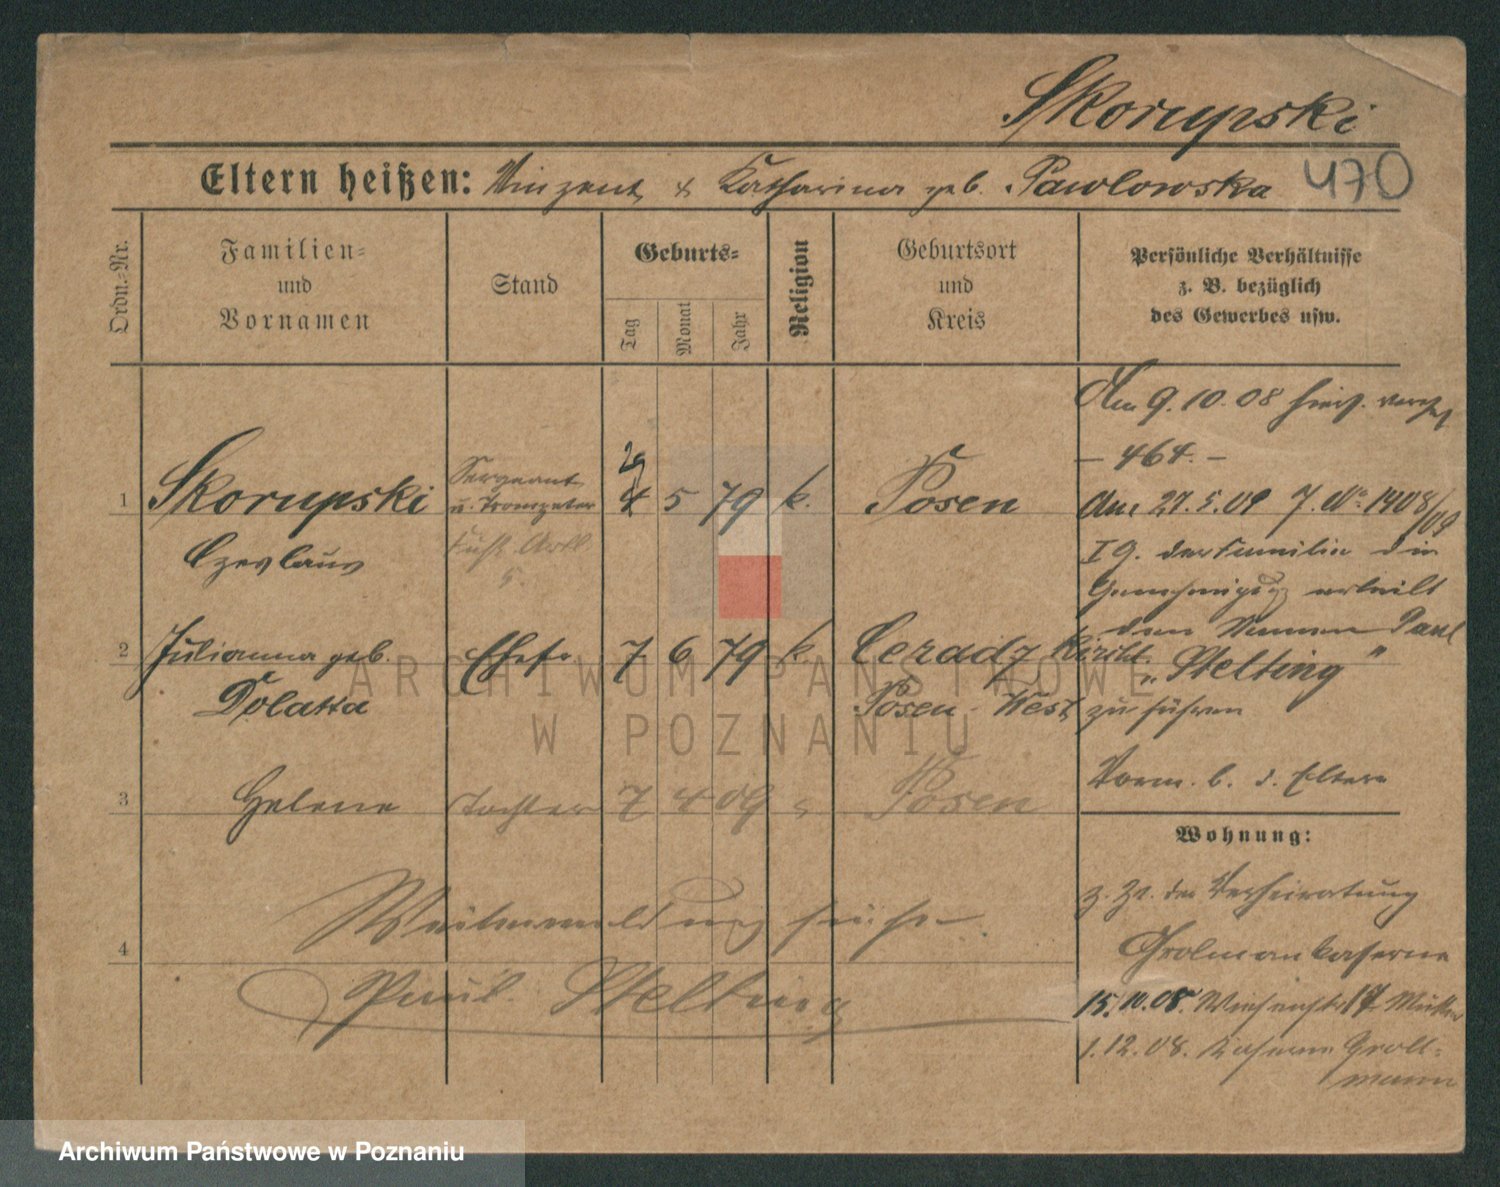 Skorupski
Eltern heißen: Vinzent & Katharina geb. Pawlowska 470
Ordn.-Nr.
Familien-
und
Vornamen
Stand
Geburts-
Tag
Monat
Jahr
Religion
Geburtsort
und
Kreis
Persönliche Verhältnisse
z. B. bezüglich
des Gewerbes usw.
1 Skorupski
Czeslaus
Sergeant
u. Trompeter
Fußartl.
5.
29
4 5 79 k. Posen
2 Julianna geb.
Dolatta
Ehefr 7 6 79 k. Ceradz Kirchl.
Posen-West
3 Helene Tochter 7 4 09 Posen
4
Weitermeldung siehe
Paul Stelting
Am 9.10.08 hier
- 464. -
Am 27.5.09 J. No 1408/09
I G. der Familie die
Genehmigung erteilt
den Namen Paul
„Stelting"
zu führen
Vorm. b. d. Eltern
Wohnung:
z. Zt. der Verheiratung
Grolmankaserne
15.10.08. Wiesenstr 17 Mutter
1.12.08. Kaserne Groll-
mann
ARCHIWUM PAŃSTWOWE
W POZNANIU
Archiwum Państwowe w Poznaniu